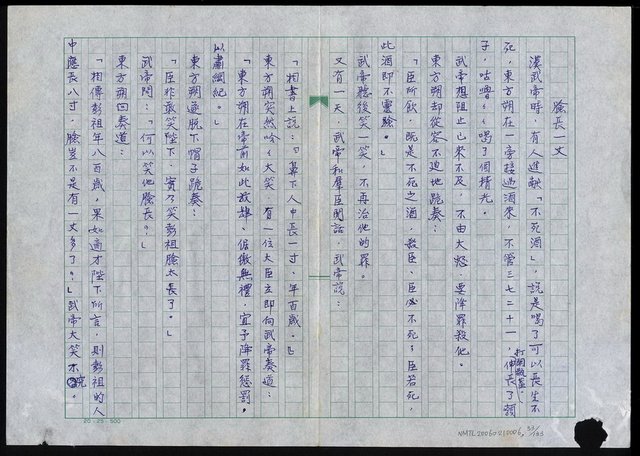 臉長一丈
漢武帝時，有人進獻「不死酒」，說是喝了可以長生不
死，東方朔在一旁接過酒來，不管三七二十一，打開瓶蓋，伸長了頸
子，咕嚕咕嚕喝了個精光。
武帝想阻止已來不及，不由大怒，要降罪殺他。
東方朔却從容不迫地跪奏：
「臣所飲，既是不死之酒，殺臣，臣必不死；臣若死，
此酒即不靈驗。」
武帝聽後笑一笑，不再治他的罪。
又有一天，武帝和羣臣閒話，武帝說：
「相書上說：『鼻下人中長一寸，年百歲。』」
東方朔突然哈哈大笑，有一位大臣立即向武帝奏道：
「東方朔在帝前如此放肆，倨傲無禮，宜予降罪懲罰，
以肅綱紀。」
東方朔遂脫下帽子跪奏：
「臣非敢笑陛下，實乃笑彭祖臉太長了。」
武帝問：「何以笑他臉長？」
東方朔回奏道：
「相傳彭祖年八百歲，果如適才陛下所言，則彭祖的人
中應長八寸，臉豈不是有一丈多了？」武帝大笑不
20×25=500
NMTL20060210006, 33/193